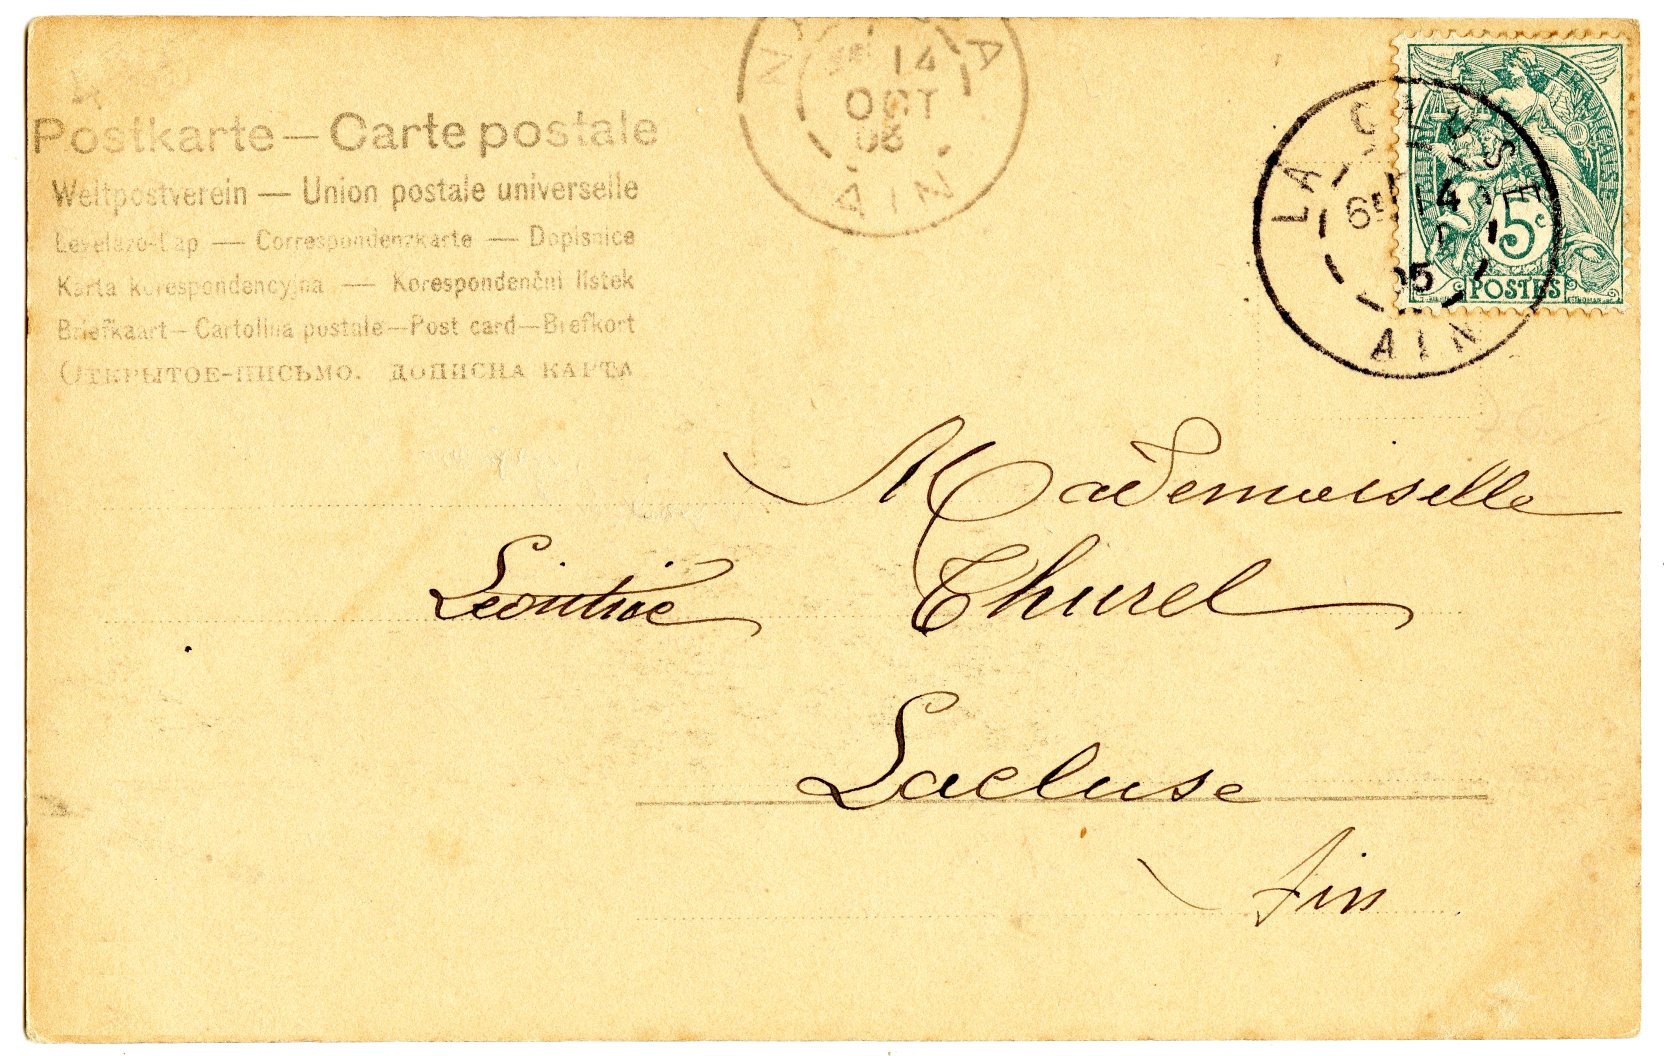 Postkarte — Carte postale
Weltpostverein — Union postale universelle
Levelezo-Lap — Correspondenzkarte — Dopisnice
Karta korespondencyjna — Korespondenční lístek
Briefkaart — Cartolina postale — Post card — Brefkort
Открытое-письмо. дописна карта
14
OCT
AIN
LA CLUSE
AIN
FRANÇAISE
5c
POSTES
Mademoiselle
Léontine Thurel
Lacluse
Ain